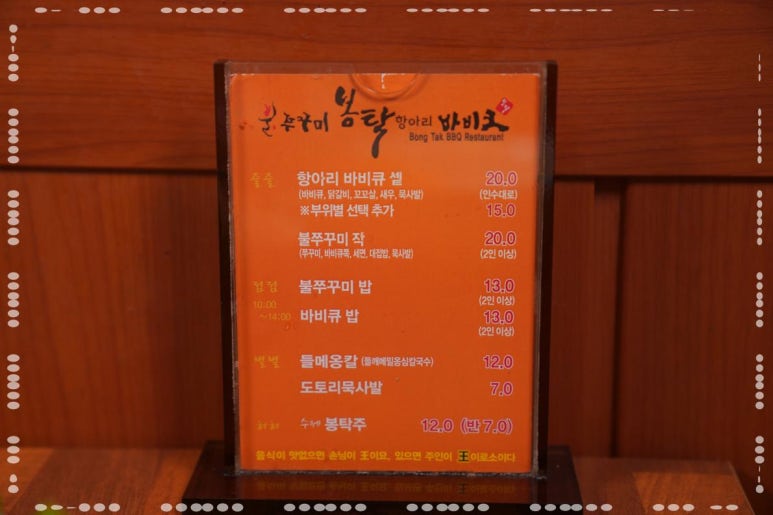 불쭈꾸미 봉탁 항아리 바비큐
Bong Tak BBQ Restaurant
항아리 바비큐 셑 20.0
(바비큐, 닭갈비, 꼬꼬살, 새우, 묵사발) (인수대로)
※부위별 선택 추가 15.0
불쭈꾸미 작 20.0
(쭈꾸미, 바비큐쪽, 세면, 대접밥, 묵사발) (2인 이상)
점점 불쭈꾸미 밥 13.0
(2인 이상)
10:00
~14:00 바비큐 밥 13.0
(2인 이상)
별별 들메옹칼 (들깨메밀옹심칼국수) 12.0
도토리묵사발 7.0
수제 봉탁주 12.0 (반 7.0)
음식이 맛없으면 손님이 王이요, 있으면 주인이 王이로소이다